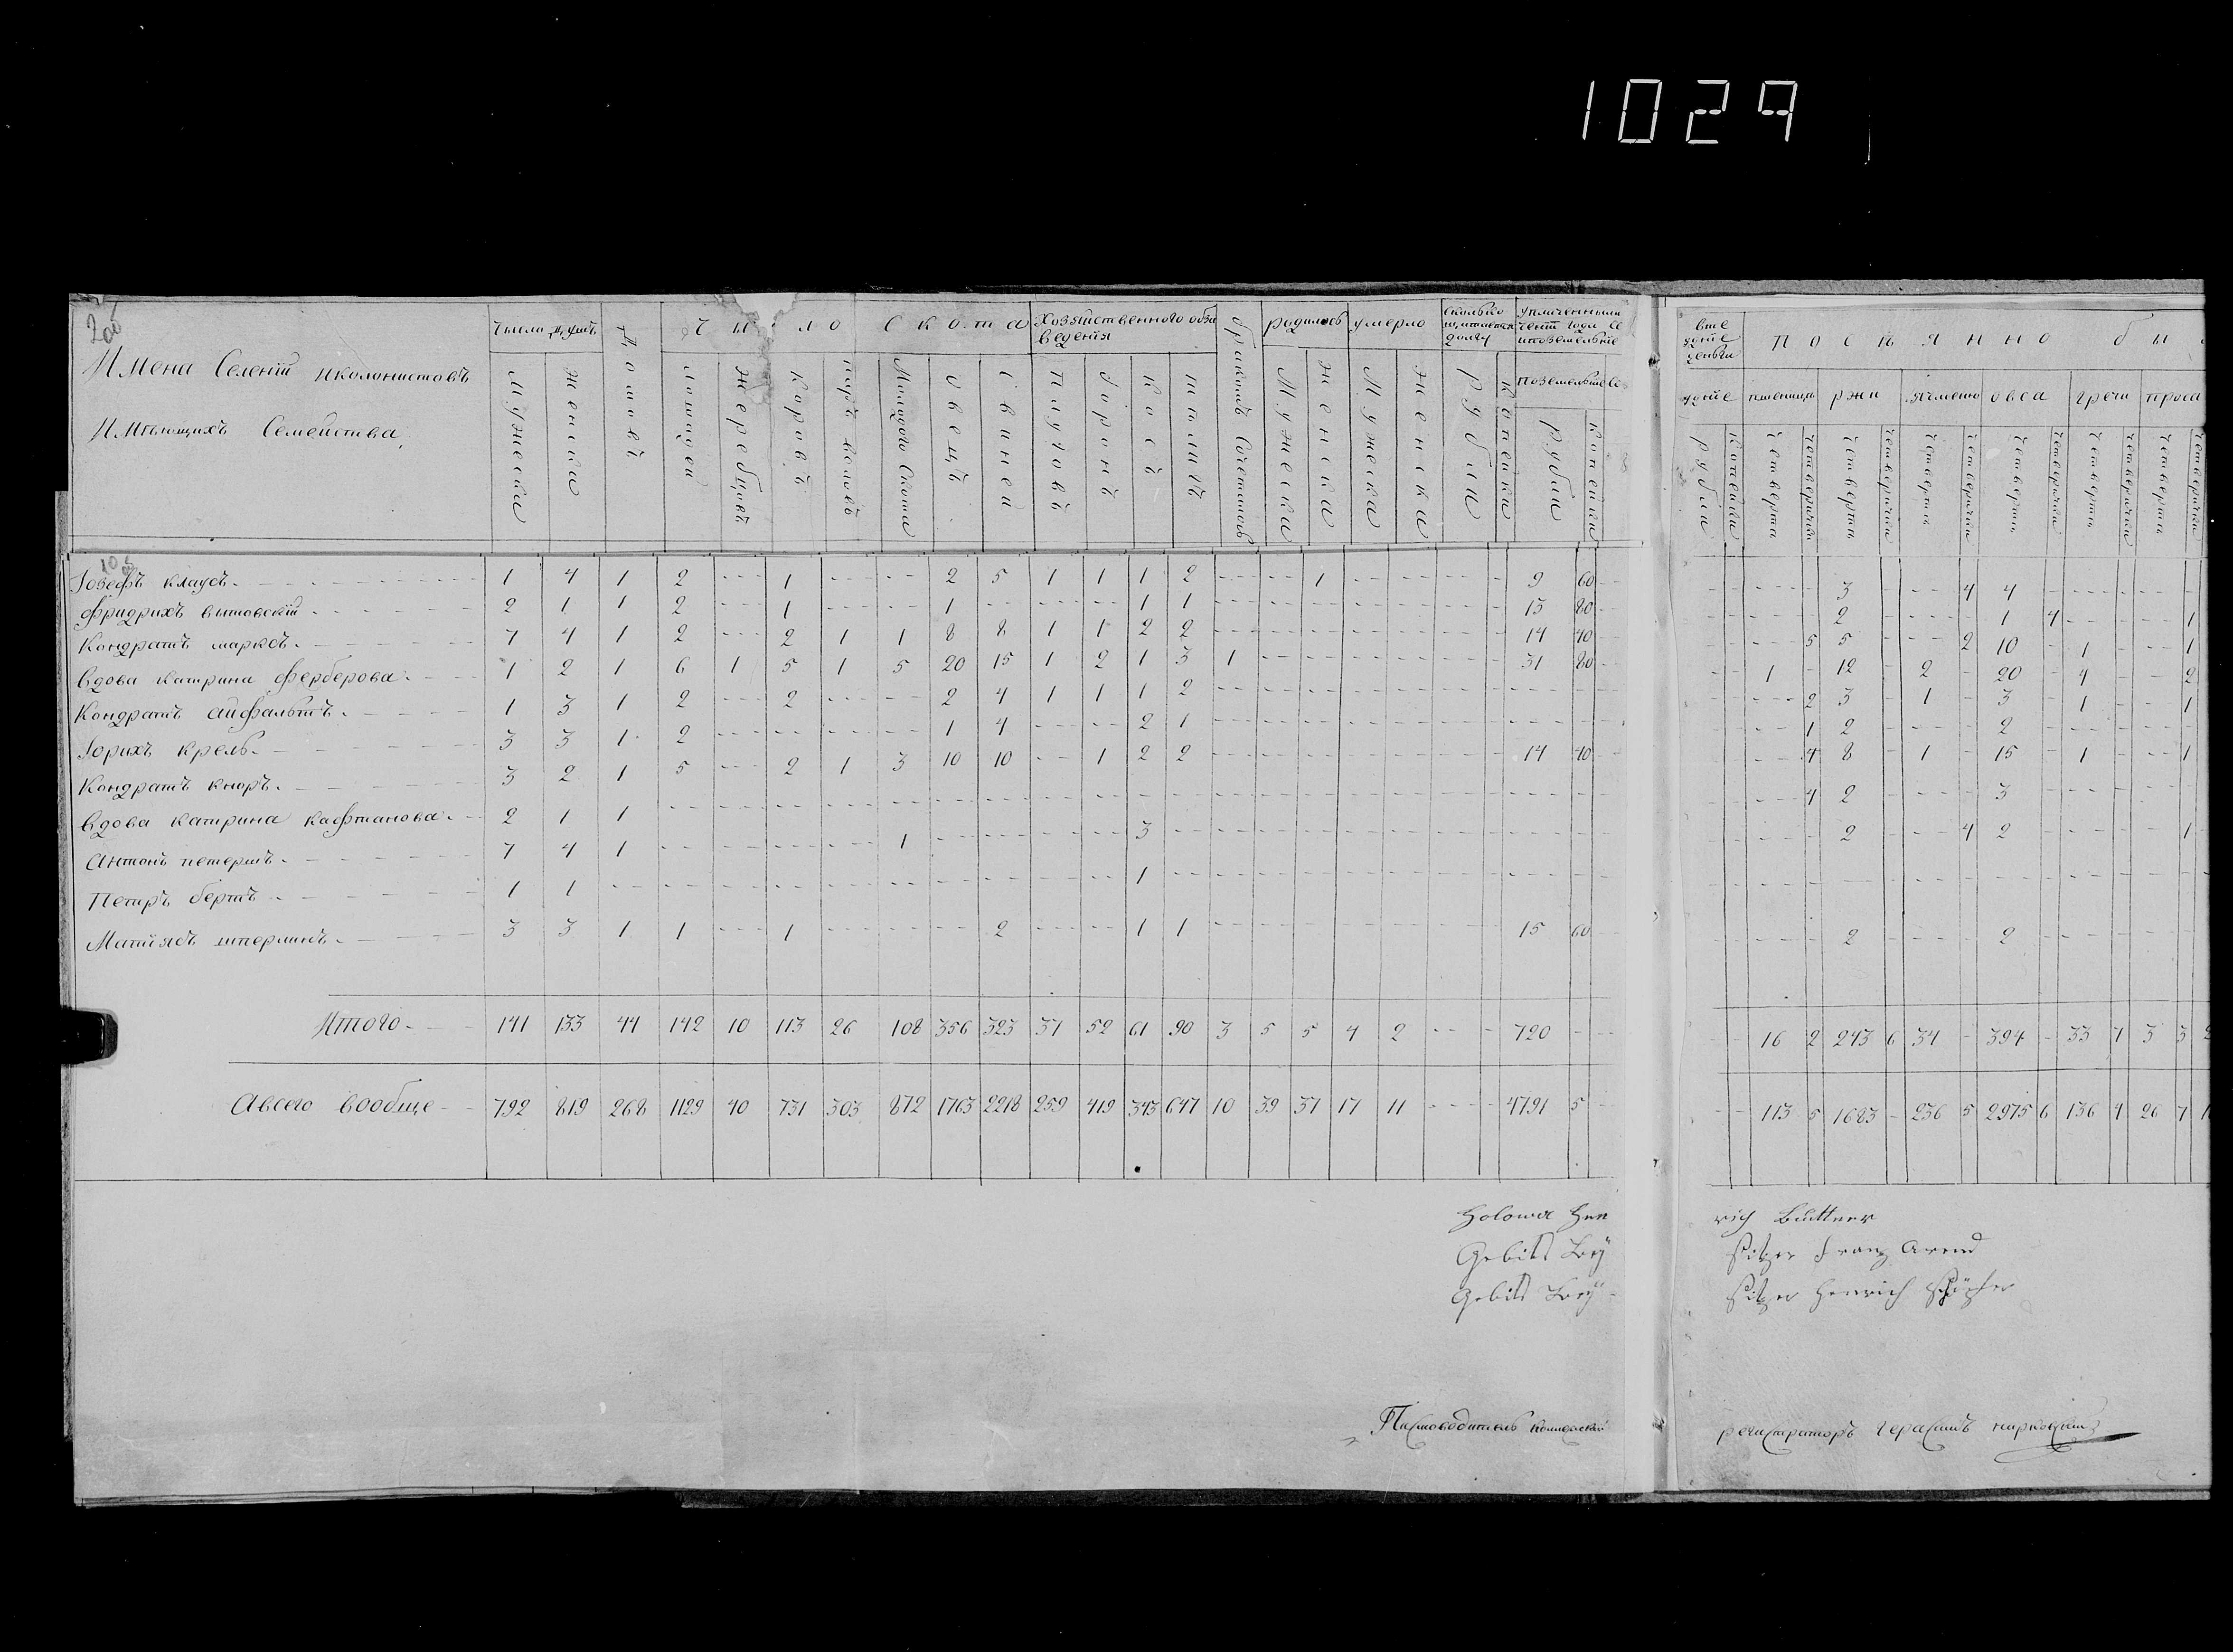 1029
200
Имена Селенiй иколонистовъ
Имѣющихъ Семейства,
число душъ
мужеска
женска
Домовъ
число скота
лошадей
жеребцовъ
коровъ
паръ воловъ
Молодого Скота
овецъ
свиней
Хозяйственного обза
ведения
плуговъ
боронъ
косъ
бракомъ Сочетаное
родилось
Мужеска
женска
умерло
Мужеска
женска
сколько
щитается
долгу
рубли
копейки
поземельные
рубли
копейки
рубли
копейки
Посѣянно бы
пшеницы
ржи
ячменю
овса
гречи
проса
четверти
четверички
четверти
четверички
четверти
четверички
четверти
четверички
четверти
четверички
четверти
четверички
Iозефъ клаусъ. 1 4 1 2 1 2 5 1 1 1 2 1 9 60 3 4 4
Фридрихъ вытовскiй 2 1 1 2 1 1 1 1 13 80 2 1 4 1
Кондратъ марксъ. 7 4 1 2 2 1 1 8 8 1 1 2 2 14 40 5 5 2 10 1 1
Вдова катрина Ферберова. 1 2 1 6 1 5 1 5 20 15 1 2 1 3 1 31 80 1 12 2 20 4 2
Кондратъ айфальтъ. 1 3 1 2 2 2 4 1 1 1 2 2 3 1 3 1 1
Iорихъ крель. 3 3 1 2 1 4 2 1 1 2 2
Кондратъ кноръ. 3 2 1 5 2 1 3 10 10 1 2 2 14 40 4 8 1 15 1 1
Вдова катрина кафтанова. 2 1 1 4 2 3
Антонъ петерсъ. 7 4 1 1 3 2 4 2 1
Петръ бертъ 1 1 1
Матiясъ шперлинъ. 3 3 1 1 1 2 1 1 15 60 2 2
Итого 141 133 44 142 10 113 26 108 356 323 37 52 61 90 3 5 5 4 2 720 16 2 243 6 34 394 33 7 3 3 2
Авсего вообще 792 819 268 1129 40 731 303 872 1763 2218 259 419 343 647 10 39 37 17 11 4791 5 113 5 1683 236 5 2975 6 136 4 26 7 1
Holowa Hen rich Büttner
Gebits Bey sitzer Franz Arend
Gebits Bey sitzer Henrich
Писмоводитель регистраторъ герасимъ